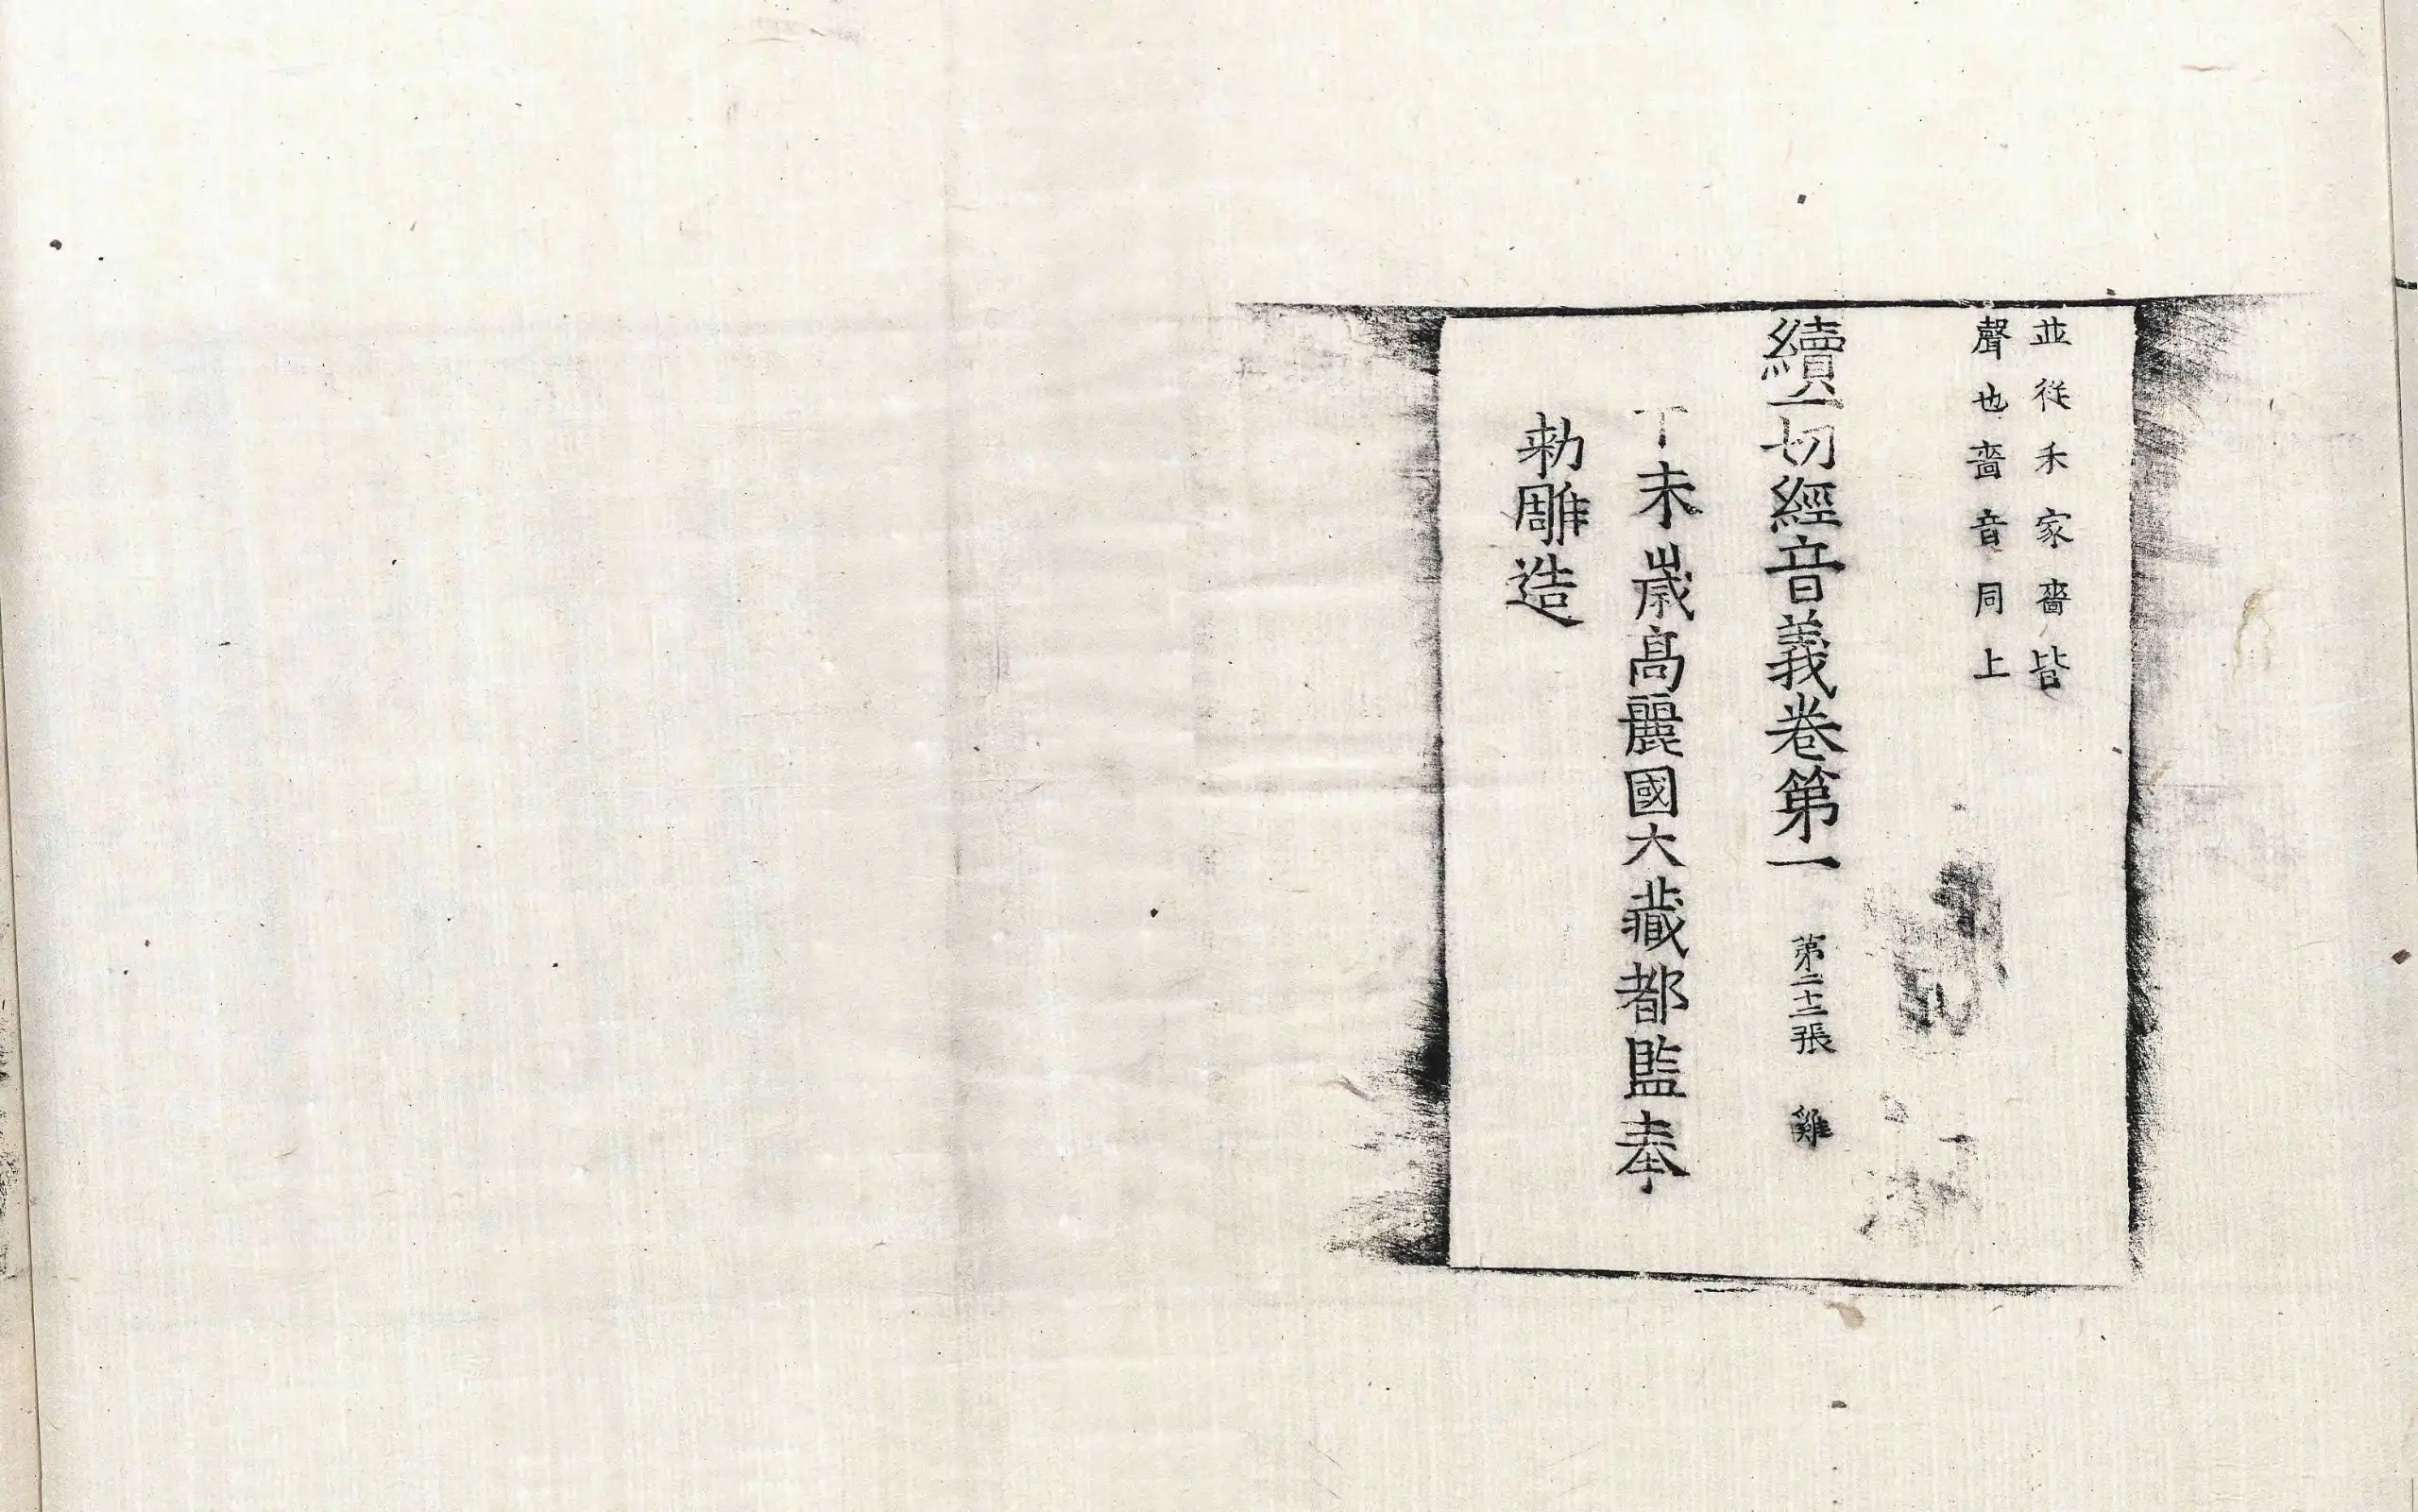 並從禾家嗇皆
聲也嗇音同上
續一切經音義卷第一 第二十三張 雞
丁未歲高麗國大藏都監奉
勑雕造